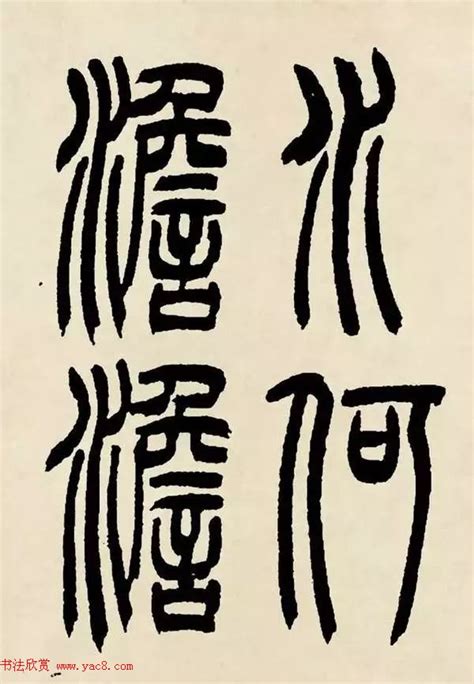 水何
澹澹
书法欣赏 www.yac8.com